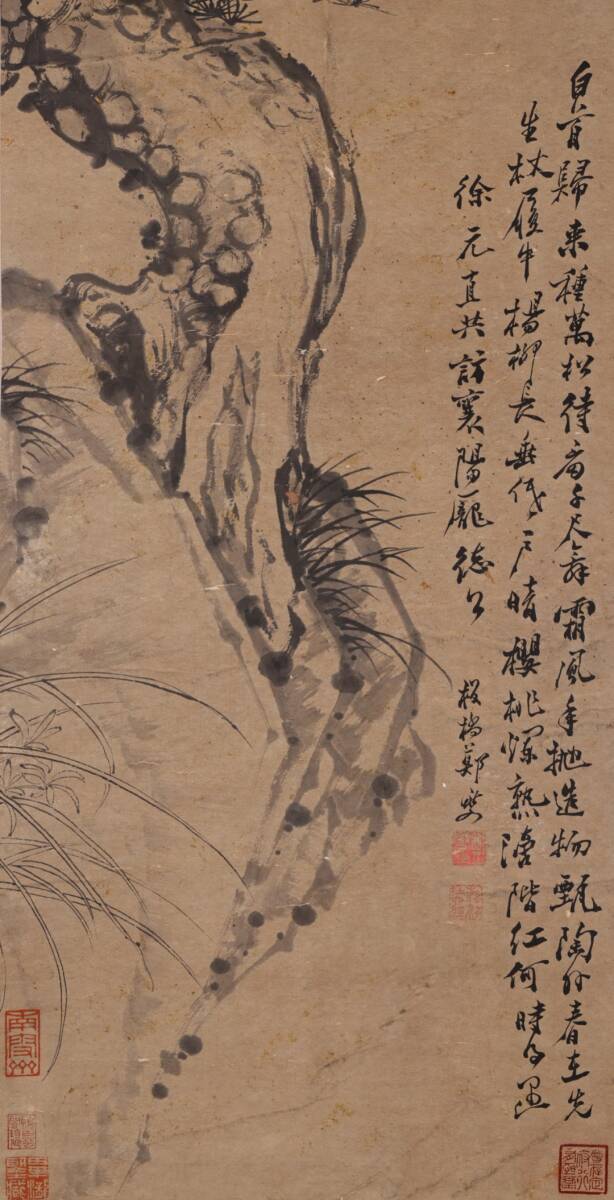 白首歸來種萬松待看千尺舞霜風年拋造物甄陶外春在先
生杖履中楊柳長垂低戶暗櫻桃爛熟滴階紅何時却與
徐元直共訪襄陽龐德公
板橋鄭燮